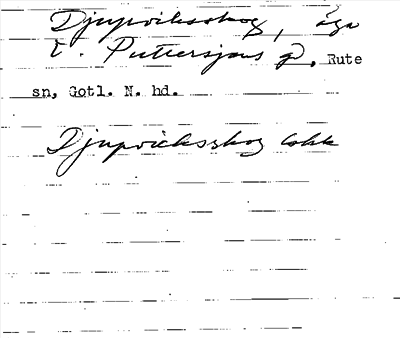 Djupviksskog, äga
t. Puttersjaus gd, Rute
sn, Gotl. N. hd.
Djupvicksskog Lokk